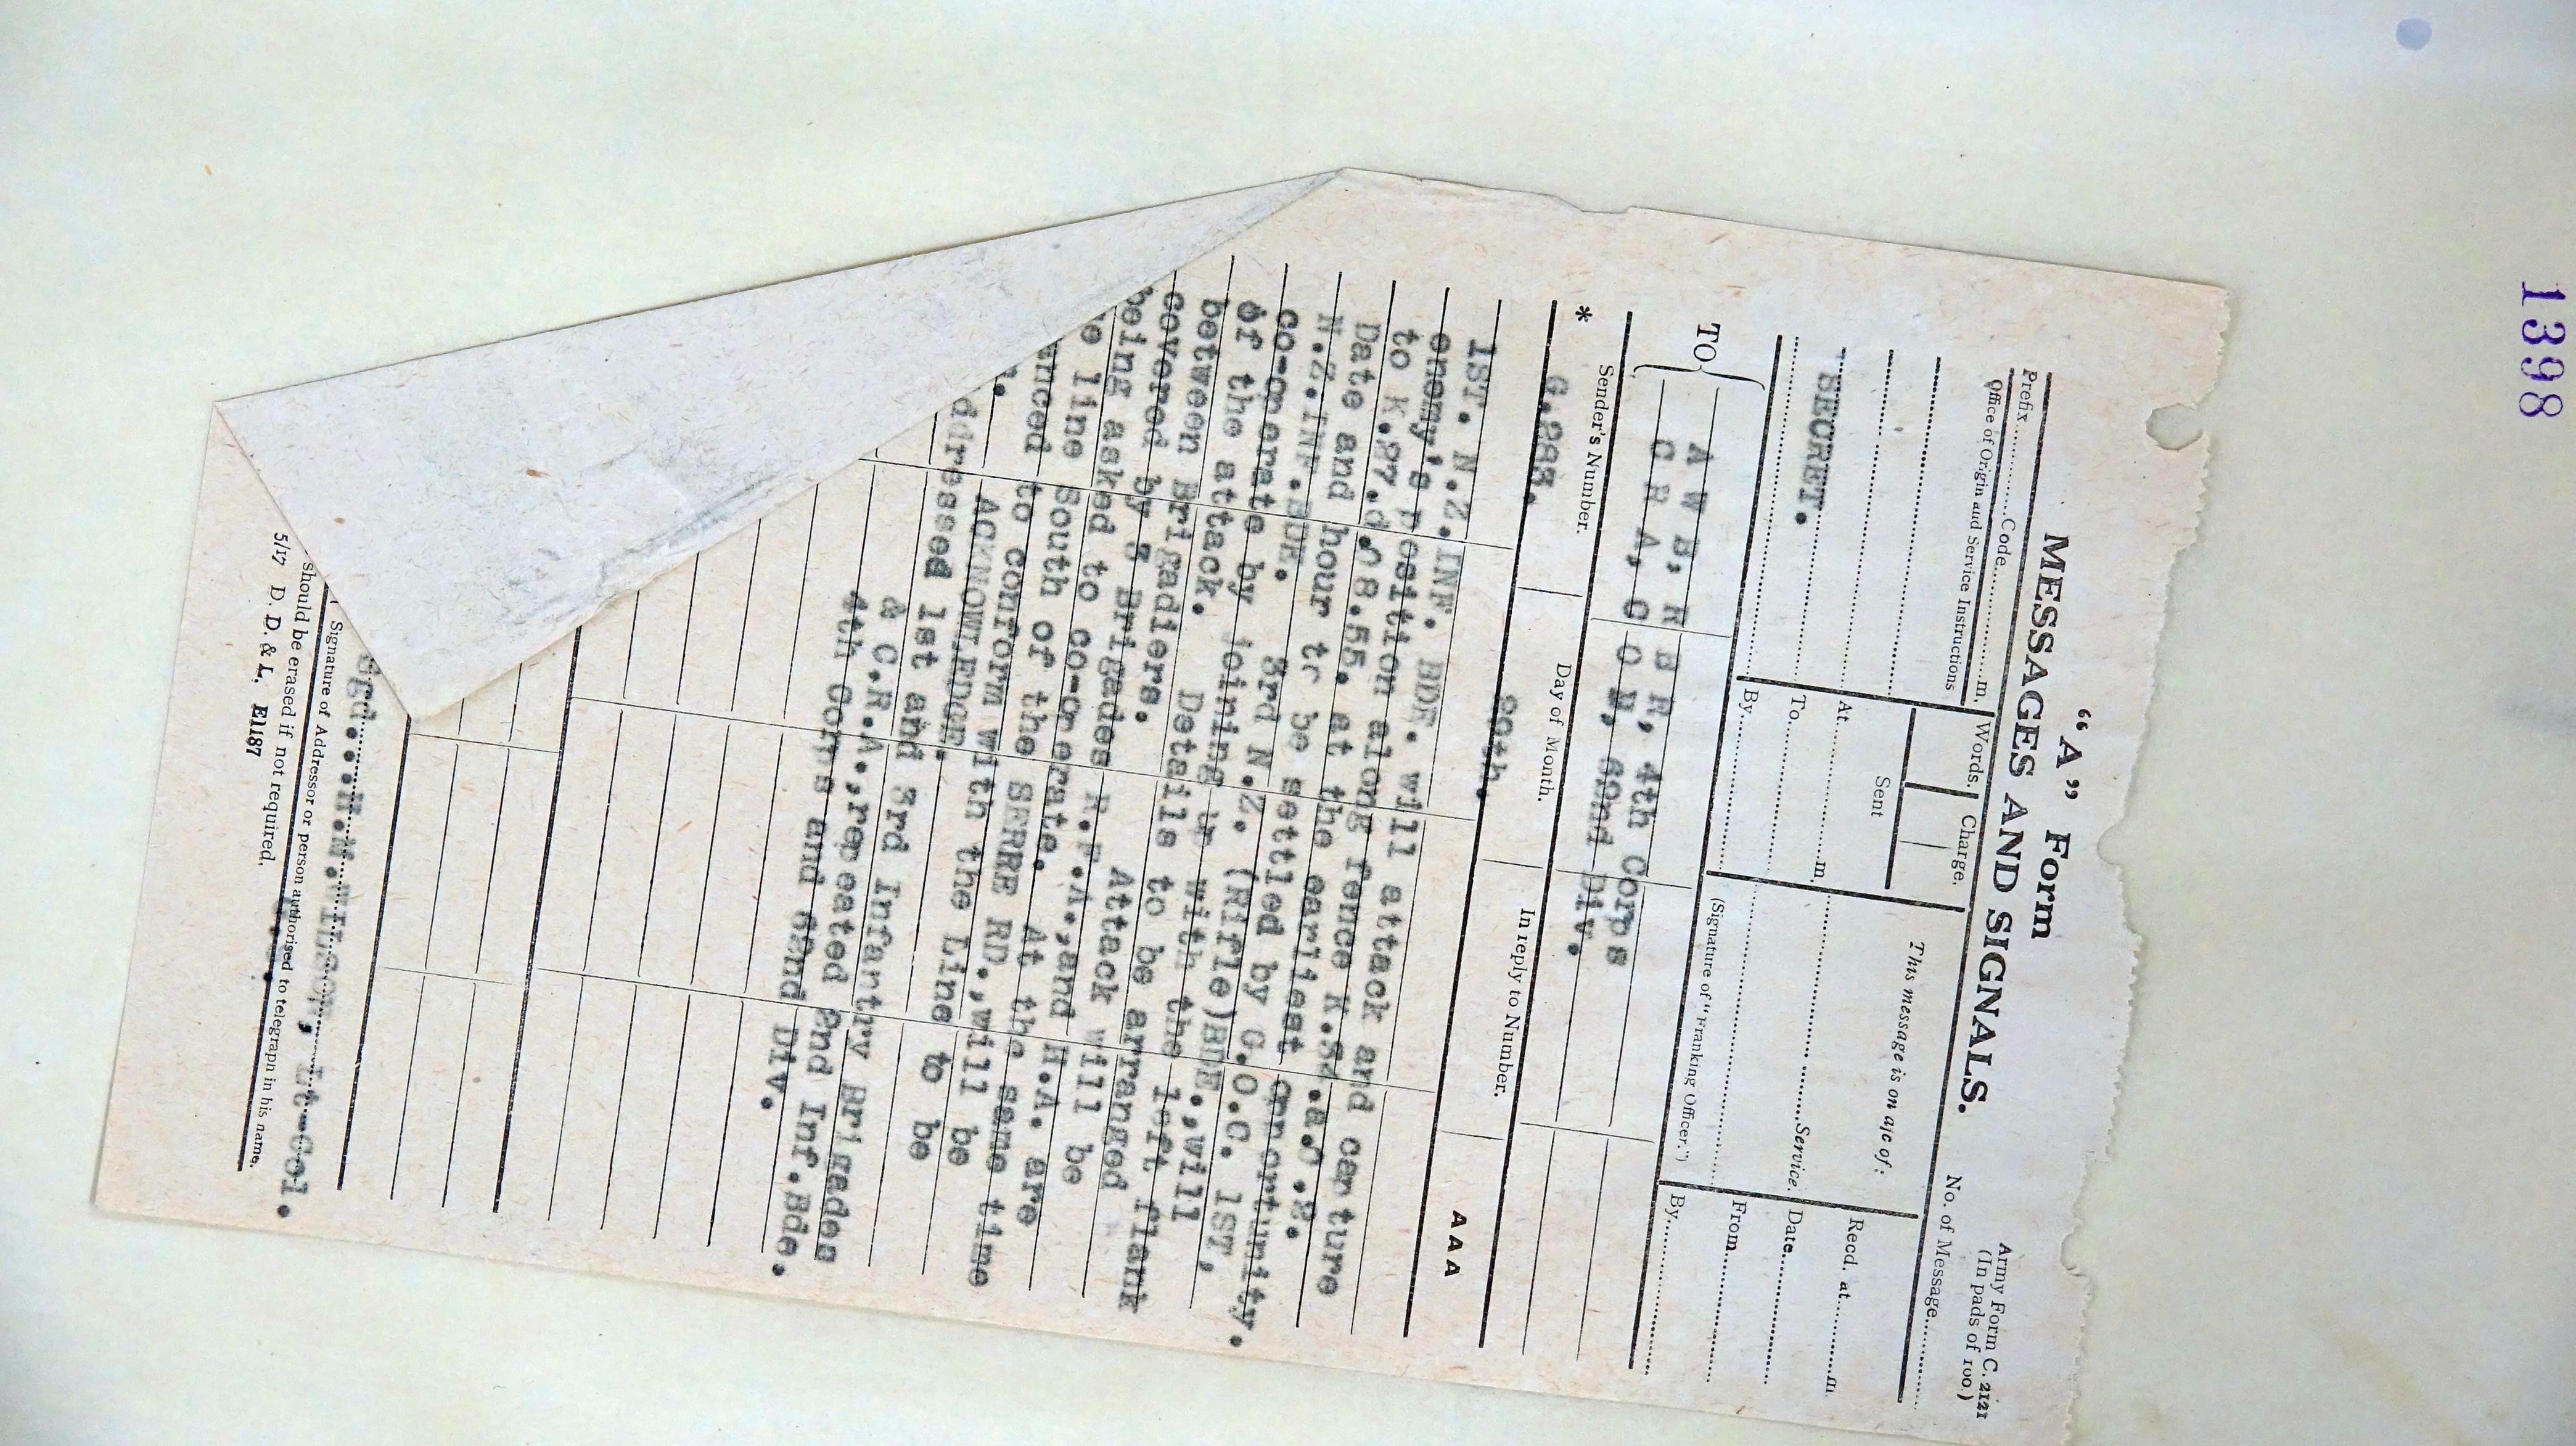 1398
"A" Form
MESSAGES AND SIGNALS.
Army Form C. 2121
(In pads of 100.)
No. of Message............
Prefix............Code..................m.
Words.
Charge.
This message is on a/c of:
Recd. at............m.
Office of Origin and Service Instructions
Sent
At..................m.
..................Service.
Date..................
SECRET.
To..................
From..................
By..................
(Signature of "Franking Officer.")
By..................
TO
4th Corps
C R A, 62nd Div.
* Sender's Number.
Day of Month.
In reply to Number.
AAA
G.288.
29th.
1ST. N.Z.INF. BDE. will attack and capture
enemy's position along fence
to 8.55. at the earliest opportunity.
Date and hour to be settled by G.O.C. 1ST.
N.Z.INF.BDE. 3rd N.Z. (Rifle)BDE.,will
co-operate by joining in with the left flank
of the attack. Details to be arranged
between Brigadiers. Attack will be
covered by 3 Brigades R.F.A.,and H.A. are
being asked to co-operate. At the same time
e line South of the SERRE RD.,will be
anced to conform with the Line to be
ACKNOWLEDGE.
ddressed 1st and 3rd Infantry Brigades
& C.R.A.,repeated 2nd Inf.Bde.
4th Corps and 62nd Div.
Sgd...H.M.WILSON, Lt-Col.
Signature of Addressor or person authorised to telegraph in his name.
should be erased if not required.
5/17 D. D. & L. E1187